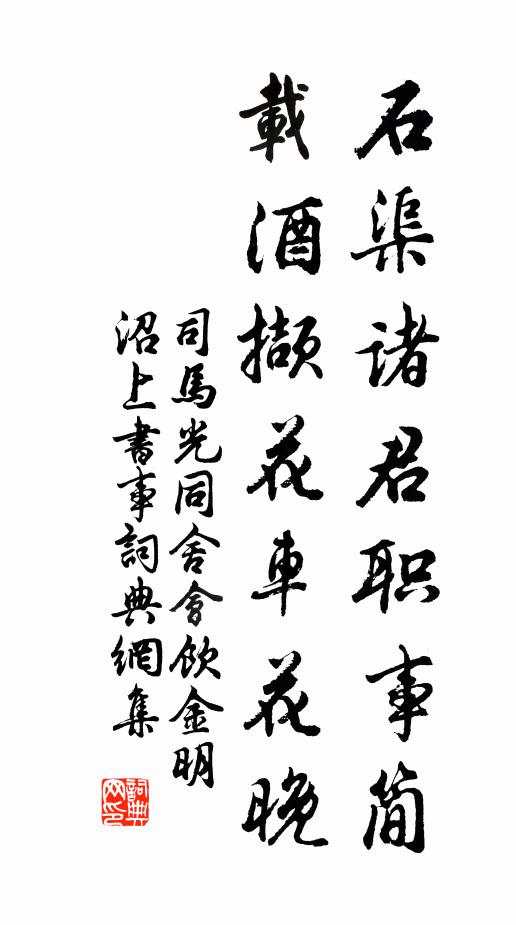 石渠诸君职事简
載酒擷花車花晚
司馬光同舍會飲金明
沼上書事詞典網集
詞典网印